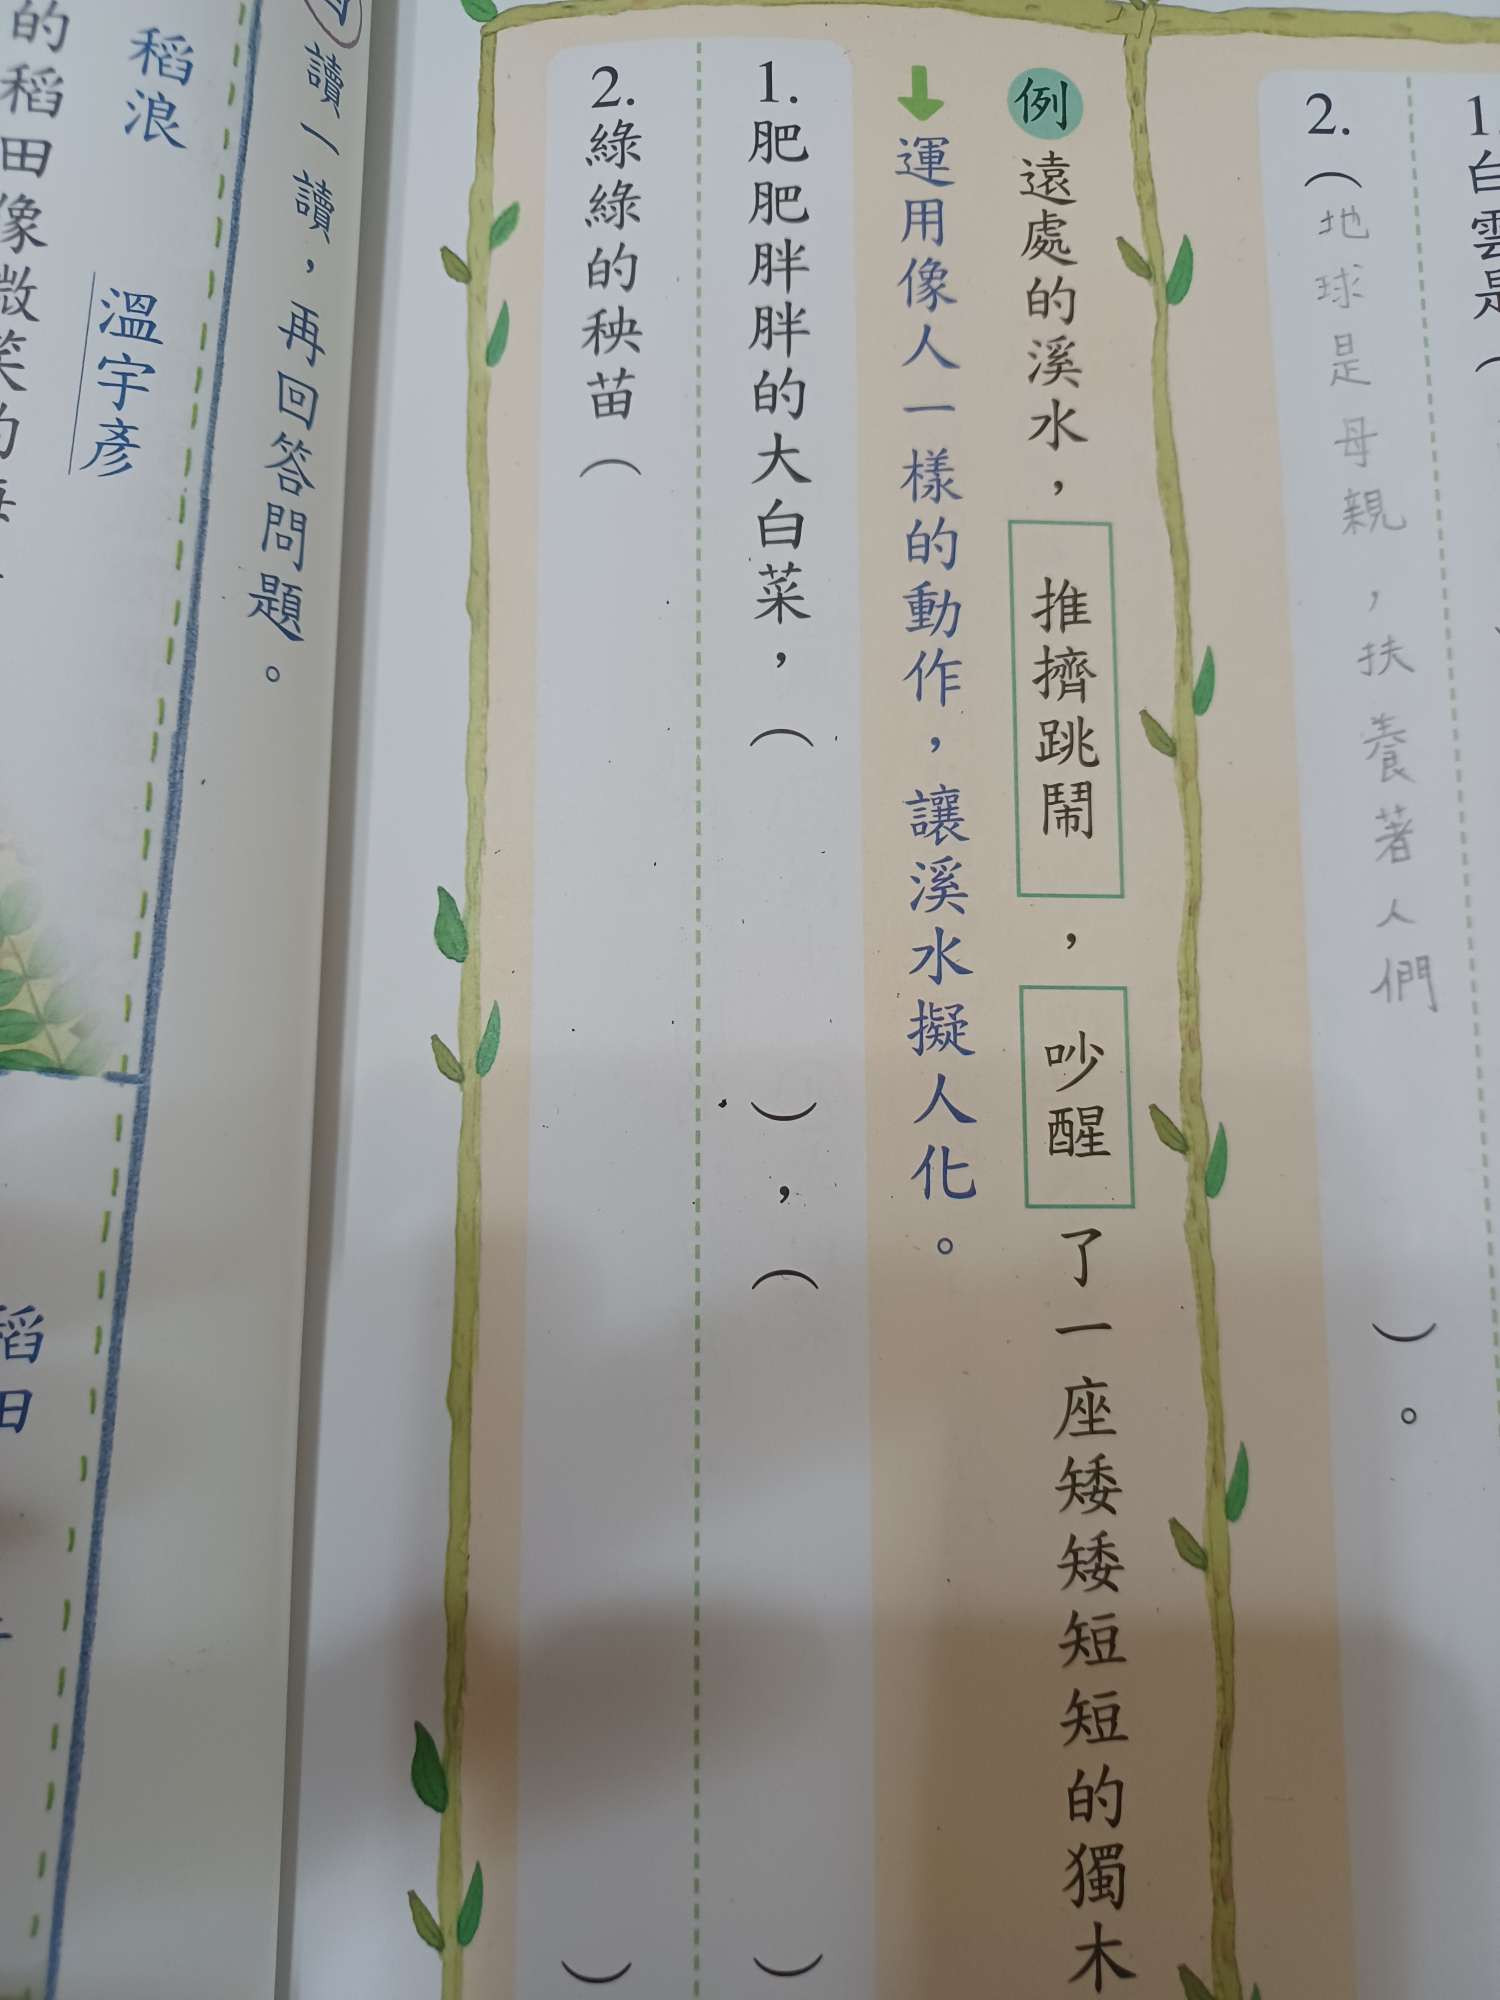 1.白雲是（
2.（地球是母親，扶養著人們）。
例 遠處的溪水，推擠跳鬧，吵醒了一座矮矮短短的獨木
運用像人一樣的動作，讓溪水擬人化。
1.肥肥胖胖的大白菜，（ ），（ ）
2.綠綠的秧苗（ ）
讀一讀，再回答問題。
稻浪
溫宇彥
的稻田像微笑的海
稻田